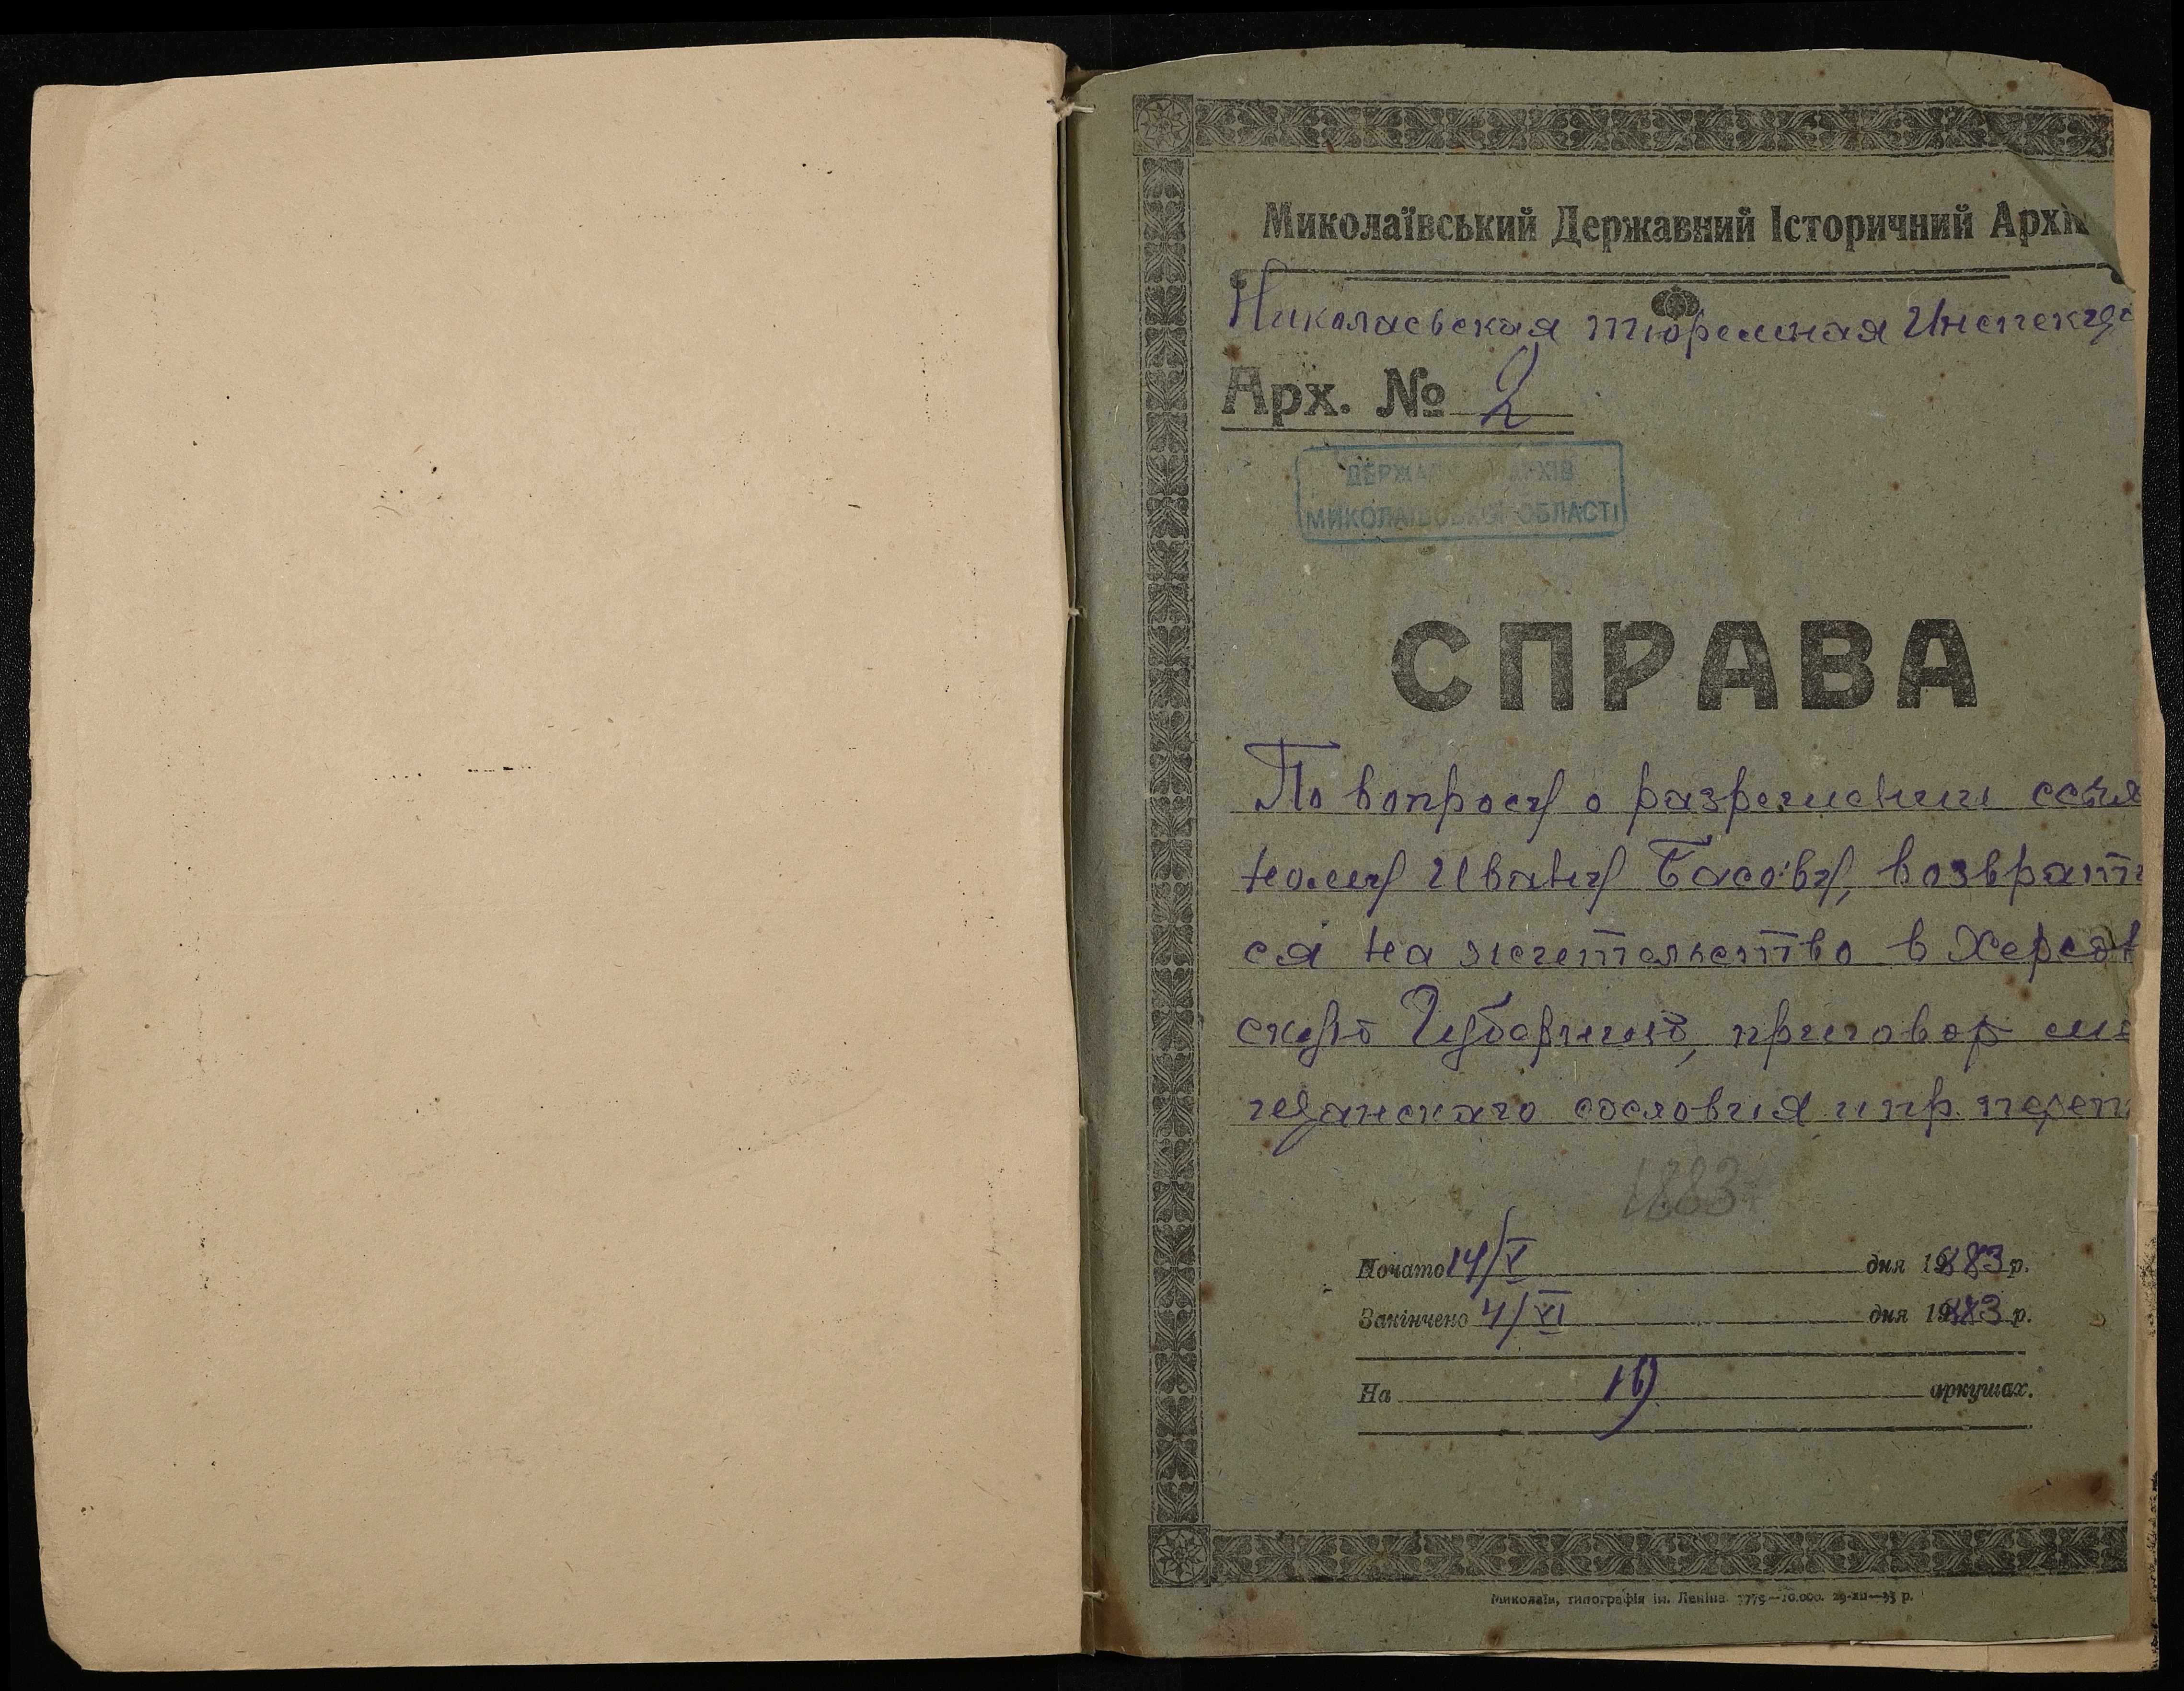 Миколаївський Державний Історичний Архів
Николаевская тюремная Инспекц
Арх. № 2
ДЕРЖА АРХІВ
МИКОЛАЇВСЬКОЇ ОБЛАСТІ
СПРАВА
По вопросу о разрешении ссыл
ному Ивану Басову, возврати
ся на жительство в Херсон
скую Губернию, приговор ме
щанскаго сословия и пр. переп
1883
Почато 14/V дня 1883 р.
Закінчено 4/VI дня 1883 р.
На аркушах.
Миколаїв, типографія ім. Леніна 7775—10.000. 29-XII—33 р.